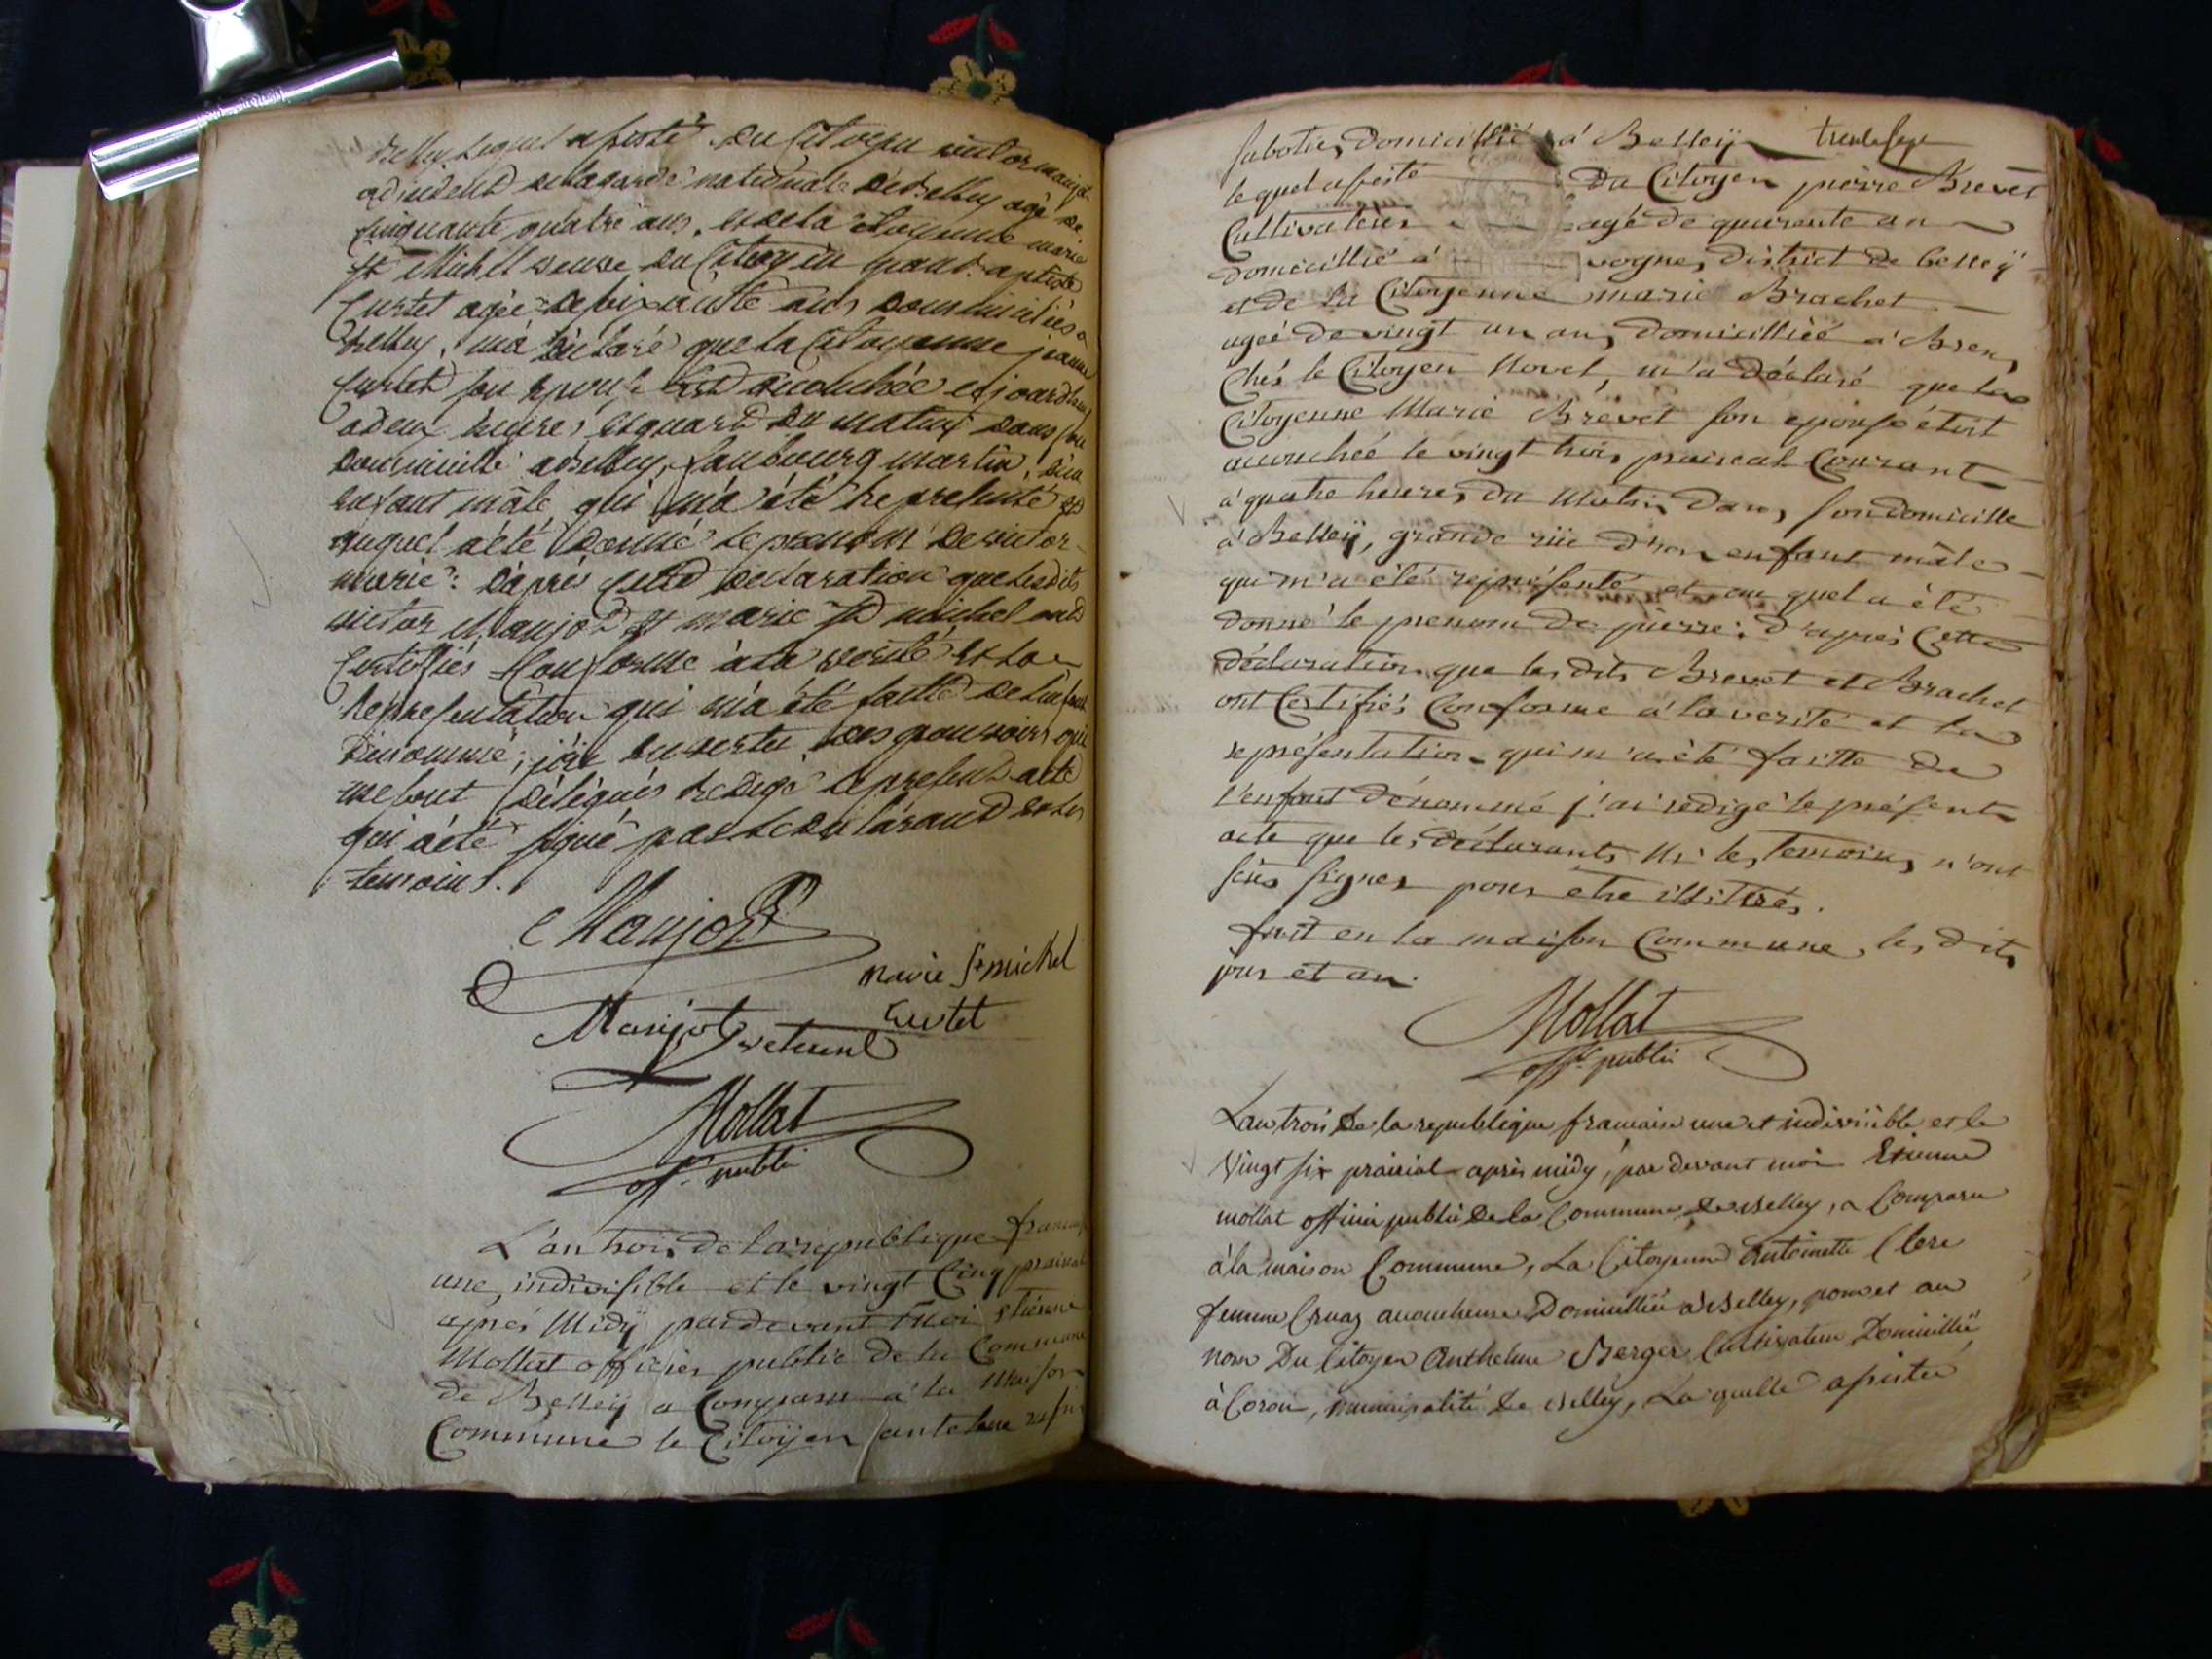 Belley lequel assisté du Citoyen victor manjot
adjudent de la garde nationale de Belley agé de
cinquante quatre ans, et de la citoyenne marie
st Michel veuve du Citoyen
Curtet agée de soixante ans domiciliés a
Belley, m'a déclaré que la Citoyenne jeanne
Curtet son epouse est accouchée
a deux heures et quart du matin dans son
domicille a Belley, faubourg martin, d'un
enfant mâle qui m'a été représenté et
auquel a été donné le prenom de victor
marie: d'après cette déclaration que lesdits
victor Manjot et marie st michel ont
Certiffiés Conforme a la verité et la
représentation qui m'a été faitte de l'enfant
dénommé; j'ai en vertu des pouvoirs qui
me sont délégués rédigé le present acte
qui a été signé par le déclarand et les
temoins.
Manjot
marie st michel
Curtet
Manjot
Mollat
off. public
L'an trois de la république française
une, indivisible et le vingt Cinq prairial
après Midÿ pardevant Moi etienne
Mollat officier public de la Commune
de Belleÿ a Comparu a la Maison
Commune le Citoÿen
sabotier, domicillié a Belleÿ trente sept
le quel assisté du Citoyen pierre Brevet
Cultivateur agé de quarante an
domicillié a vogne, district de belleÿ
et de la Citoyenne marie Brachet
ageé de vingt un an, domicilliéé a Bren,
Chés le Citoyen Novel, m'a déclaré que la
Citoyenne Marie Brevet son epouse étoit
accouchée le vingt trois prairial Courant
a quatre heures du Matin, dans son domicille
a Belleÿ, grande rüe d'un enfant mâle
qui m'a été représenté et au quel a été
donné le prenom de pierre: d'après Cette
déclaration que les dits Brevet et Brachet
ont Certifiés Conforme a la verité et la
représentation qui m'a été faitte de
l'enfant dénommé j'ai redigé le présent
acte que les déclarants Ni les temoins n'ont
sçus signer pour étre illitérés.
fait en la maison Commune, les dits
jour et an.
Mollat
off. public
L'an trois de la republique francaise une et indivisible et le
vingt six prairial après midy, par devant moi Etienne
mollat officier public de la Commune de Belley, a Comparu
à la maison Commune, La Citoyenne Antoinette Clerc
femme Cruaz accoucheuse Domicilliée à Belley, pour et au
nom Du Citoyen Anthelme Berger Cultivateur Domicillié
à Coron, municipalité de Belley, La quelle assistée